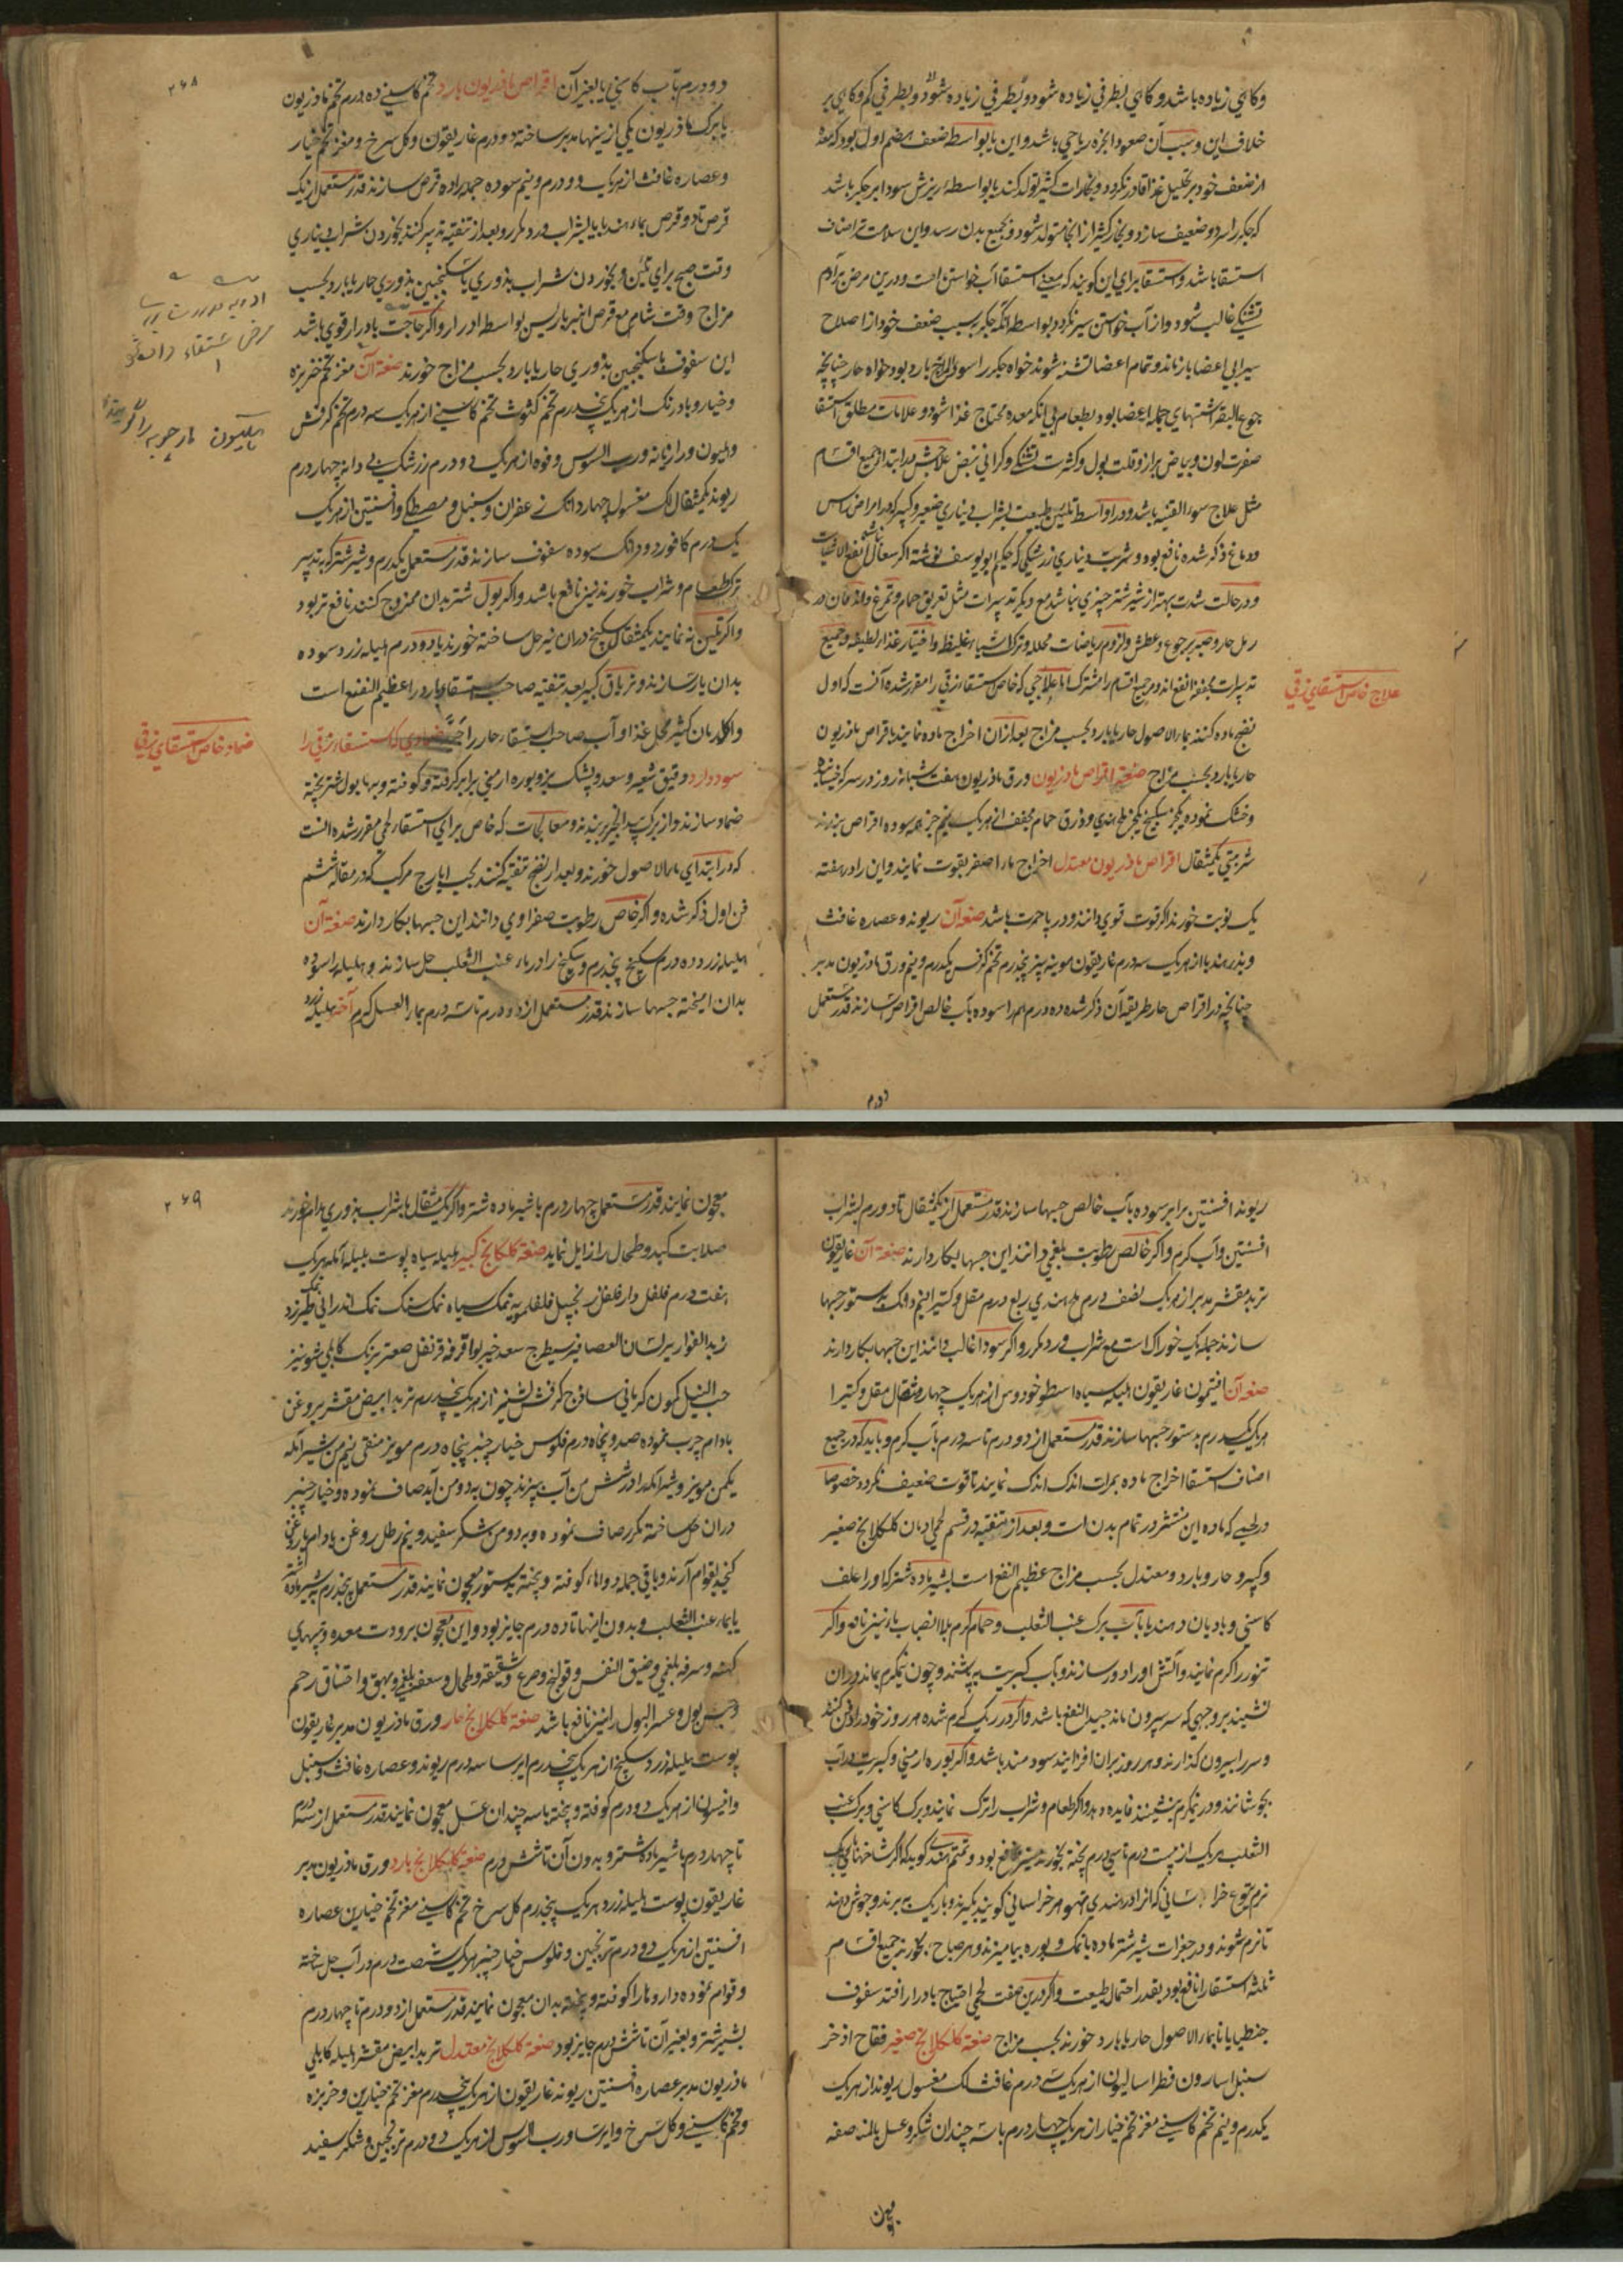 وکاهی زیاده باشد و کاهی بطرفی زیاده شود و بطرفی زیاده شود و بطرفی کم و کاهی بر
خلاف این و سبب آن صعود ابخره ریاحی باشد و این یا بواسطه ضعف هضم اول بود که معده
از ضعف خود بر تحلیل غذا قادر نکردد و بخارات کثیر تولد کند یا بواسطه ریزش سودا بر جکر باشد
که جکر را سرد و ضعیف سازد و بخار کثیر از انجا متولد شود و بجمیع بدن رسد و این سلامت تر اصناف
استسقا باشد و استسقا برای این کویند که معنی استسقا آب خواستن است و درین مرض بر آدم
تشنکی غالب شود و از آب خواستن سیر نکردد بواسطه آنکه جکر بسبب ضعف خود از اصلاح
سیرابی اعضا بازماند و تمام اعضا تشنه شوند خواه جکر را سوء المزاج بارد بود خواه حار چنانچه
جوع البقر اشتهای جمله اعضا بود بطعام بی آنکه معده محتاج غذا شود و علامات مطلق استسقا
صفرت لون و بیاض براز و قلت بول و کثرت تشنکی و کرانی نبض علاجش در ابتدا جمیع اقسام
مثل علاج سوء القنیه باشد و در اواسط تلیین طبیعت بشراب دیناری صغیر و کبیر که در امراض راس
و دماغ ذکر شده نافع بود و شربت دیناری زرشکی که حکیم ابو یوسف نوشته اکر سعال نباشد
و در حالت شدت بهتر از شیر شتر چیزی نباشد مع دیکر تدبیرات مثل تعریق حمام و تمرغ و اندفان در
رمل حار و صبر بر جوع و عطش و لزوم ریاضات محلله و ترک اشیاء غلیظ و اختیار غذاء لطیف و جمیع
تدبیرات مجففه انفع اند و جمیع اقسام را مشترک اما علاجی که خاص استسقاء زقی را مقرر شده آنست که اول
نضج ماده کنند بماء الاصول حار یا بارد بحسب مزاج بعد ازان اخراج ماده نمایند باقراص ماذریون
حار یا بارد بحسب مزاج صنعة اقراص ماذریون ورق ماذریون هفت شبانه روز در سرکه خیسانیده
و خشک نموده یکجزو سکبینج یکجزو ملح هندی و ذرق حمام مجفف از هر یک نیم جزو همه سوده اقراص سازند
شربتی یکمثقال اقراص ماذریون معتدل اخراج ماء اصفر بقوت نمایند و این را در هفته
یک نوبت خورند اکر قوت قوی دانند و در پاحمرت باشد صنعه آن ریوند و عصاره غافث
و بذر هندبا از هر یک سه درم غاریقون مویه سپید پنجدرم تخم کرفس یکدرم و نیم ورق ماذریون مدبر
چنانچه در اقراص حار طریقه آن ذکر شده ده درم همه را سوده بآب خالص اقراص سازند قدر مستعمل
علاج خاص استسقای زقی
دو درم
۲۶۸
دو درم بآب کاسنی یا بغیر آن اقراص ماذریون بارد تخم کاسنی ده درم تخم ماذریون
یا برک ماذریون یکی ازینها مدبر ساخته دو درم غاریقون و کل سرخ و مغز تخم خیار
و عصاره غافث از هر یک دو درم و نیم سوده جمله را ده قرص سازند قدر مستعمل از یک
قرص تا دو قرص بماء هندبا یا بشراب ورد مکرر و بعد از تنقیه تدبیر کنند بخوردن شراب دیناری
وقت صبح برای تلیین و بخوردن شراب بذوری یا سکنجبین بذوری حار یا بارد بحسب
مزاج وقت شام مع قرص امبرباریس بواسطه ادرار و اکر حاجت بادرار قوی باشد
این سفوف با سکنجبین بذوری حار یا بارد بحسب مزاج خورند صنعة آن مغز تخم خربزه
و خیار و بادرنک از هر یک پنجدرم تخم کثوث تخم کاسنی از هر یک سه درم تخم کرفس
و هلیون و رازیانه و رب السوس و فوه از هر یک دو درم زرشک بی دانه چهار درم
ریوند یکمثقال لک مغسول چهار دانک زعفران و سنبل و مصطکی و افسنتین از هر یک
یک درم کافور دو دانک سوده سفوف سازند قدر مستعمل یکدرم و شیر شتر که به تدبیر
ترک طعام و شراب خورند نیز نافع باشد و اکر بول شتر بدان ممزوج کنند نافع تر بود
و اکر تلیین نه نمایند یکمثقال سکبینج دران نیز حل ساخته خورند یا ده درم هلیله زرد سوده
بدان یار سازند و تریاق کبیر بعد تنقیه صاحب استسقاء بارد را عظیم النفع است
و اکل نان کثیر محلل غذا و آب صاحب استسقاء حار را ضمادی که استسقاء زقی را
سود دارد دقیق شعیر و سعد و پشک بز و بوره ارمنی برابر کرفته و کوفته و بیخته ببول شتر پخته
ضماد سازند و از برک بید انجیر بربندند و معالجات که خاص برای استسقاء لحمی مقرر شده آنست
که در ابتدای ماء الاصول خورند و بعد از نضج تنقیه کنند بحب ایارج مرکب که در مقاله ششم
فن اول ذکر شده و اکر خاص رطوبت صفراوی دانند این حبها بکار دارند صنعة آن
هلیله زرد ده درم سکبینج پنجدرم سکبینج را در ماء عنب الثعلب حل سازند و هلیله را سوده
بدان آمیخته حبها سازند قدر مستعمل از دو درم تا سه درم بماء العسل کرم آخر هلیله زرد
ضماد خاص استسقای زقی
مرض استسقاء را
مارچوبه را
ریوند افسنتین برابر سوده بآب خالص حبها سازند قدر مستعمل از یکمثقال تا دو درم بشراب
افسنتین و آب کرم و اکر خالص رطوبت بلغمی دانند این حبها بکار دارند صنعة آن غاریقون
تربد مقشر مدبر از هر یک نصف درم ملح هندی ربع درم مقل و کتیرا نیم دانک بدستور حبها
سازند جمله یک خوراک است مع شراب ورد مکرر و اکر سودا غالب دانند این حبها بکار دارند
صنعه آن افتیمون غاریقون هلیله سیاه اسطوخودوس از هر یک چهار مثقال مقل و کتیرا
هر یک یکدرم بدستور حبها سازند قدر مستعمل از دو درم تا سه درم بآب کرم و باید که در جمیع
اصناف استسقا اخراج ماده بمرات اندک اندک نمایند تا قوت ضعیف نکردد خصوصا
در لحمی که ماده این منتشر در تمام بدن است و بعد از تنقیه در قسم لحمی ادمان کلکلانج صغیر
و کبیر و حار و بارد و معتدل بحسب مزاج عظیم النفع است بشیر ماده شتر که او را علف
کاسنی و بادیان دهند یا بآب برک عنب الثعلب و حمام کرم بلا انصباب ماء نیز نافع و اکر
تنور را کرم نمایند و آتش او را دور سازند و بآب کبریت بپاشند و چون نیمکرم بماند دران
نشینند بر وجهی که سر بیرون ماند جید النفع باشد و اکر در ریک کرم شده هر روز خود را دفن کنند
و سر را بیرون کذارند و هر روز بران افزایند سودمند باشد و اکر بوره ارمنی و کبریت در آب
بجوشانند و در نیمکرم بنشینند فایده دهد و اکر طعام و شراب را ترک نمایند و برک کاسنی و برک عنب
الثعلب هر یک از بیست درم تا سی درم پخته بخورند نیز نافع بود و کوید که اکر شاخهای
نرم یتوع خراسانی که انرا در هندی تهوهر خراسانی کویند بکیرند و باریک ببرند و جوش دهند
تا نرم شوند و در جغرات شیر شتر ماده با نمک و بوره بیامیزند و هر صباح بخورند جمیع اقسام
ثلثه استسقا را نافع بود بقدر احتمال طبیعت و اکر درین صفت لحمی احتیاج بادرار افتد سفوف
جنطیانا بماء الاصول حار یا بارد خورند بحسب مزاج صنعة کلکلانج صغیر فقاح اذخر
سنبل اسارون فطراسالیون از هر یک سه درم غافث لک مغسول ریوند از هر یک
یکدرم و نیم تخم کاسنی مغز تخم خیار از هر یک چهار درم با سه چندان شکر و عسل بالمناصفه
معجون
۲۶۹
معجون نمایند قدر مستعمل چهار درم با شیر ماده شتر و اکر یک مثقال با شراب بذوری مدام خورند
صلابت کبد و طحال را زایل نماید صنعة کلکلانج کبیر هلیله سیاه پوست بلیله آمله هر یک
هفت درم فلفل دارفلفل زنجبیل فلفلمویه نمک سیاه نمک سنک نمک اندرانی نمک طبرزد
زبد القواریر لسان العصافیر شیطرج سعد خیربوا قرفه قرنفل صعتر برنک کابلی شونیز
حب النیل کمون کرمانی ساذج کرفس کشنیز از هر یک پنجدرم تربد ابیض مقشر بروغن
بادام چرب نموده صد و پنجاه درم فلوس خیارچنبر پنجاه درم مویز منقی نیم من شیر آمله
یکمن مویز و شیر آمله را در شش من آب بپزند چون به دو من آید صاف نموده و خیارچنبر
دران حل ساخته مکرر صاف نموده و به دو من شکر سفید و نیم رطل روغن بادام یا روغن
کنجد بقوام آرند و باقی جمله دواها کوفته و بیخته بدستور معجون نمایند قدر مستعمل پنجدرم به شیر ماده شتر
یا بماء عنب الثعلب و بدون اینها تا ده درم جایز بود و این معجون برودت معده و تبهای
کهنه و سرفه بلغمی و ضیق النفس و قولنج و صرع و شقیقه و طحال و سعفه بلغمی و بهق و اختناق رحم
و حبس بول و عسر البول را نیز نافع باشد صنعة کلکلانج حار ورق ماذریون مدبر غاریقون
پوست هلیله زرد سکبینج از هر یک پنجدرم ایرسا سه درم ریوند و عصاره غافث و سنبل
و انیسون از هر یک دو درم کوفته و بیخته با سه چندان عسل معجون نمایند قدر مستعمل از سه درم
تا چهار درم با شیر ماده شتر و بدون آن تا شش درم صنعة کلکلانج بارد ورق ماذریون مدبر
غاریقون پوست هلیله زرد هر یک پنجدرم کل سرخ تخم کاسنی مغز تخم خیارین عصاره
افسنتین از هر یک دو درم ترنجبین و فلوس خیارچنبر هر یک شصت درم در آب حل ساخته
و قوام نموده داروها را کوفته و بیخته بدان معجون نمایند قدر مستعمل از دو درم تا چهار درم
بشیر شتر و بغیر آن تا شش درم جایز بود صنعة کلکلانج معتدل تربد ابیض مقشر هلیله کابلی
ماذریون مدبر عصاره افسنتین ریوند غاریقون از هر یک پنجدرم مغز تخم خیارین و خربزه
و تخم کاسنی و کل سرخ و ایرسا و رب السوس از هر یک دو درم ترنجبین و شکر سفید